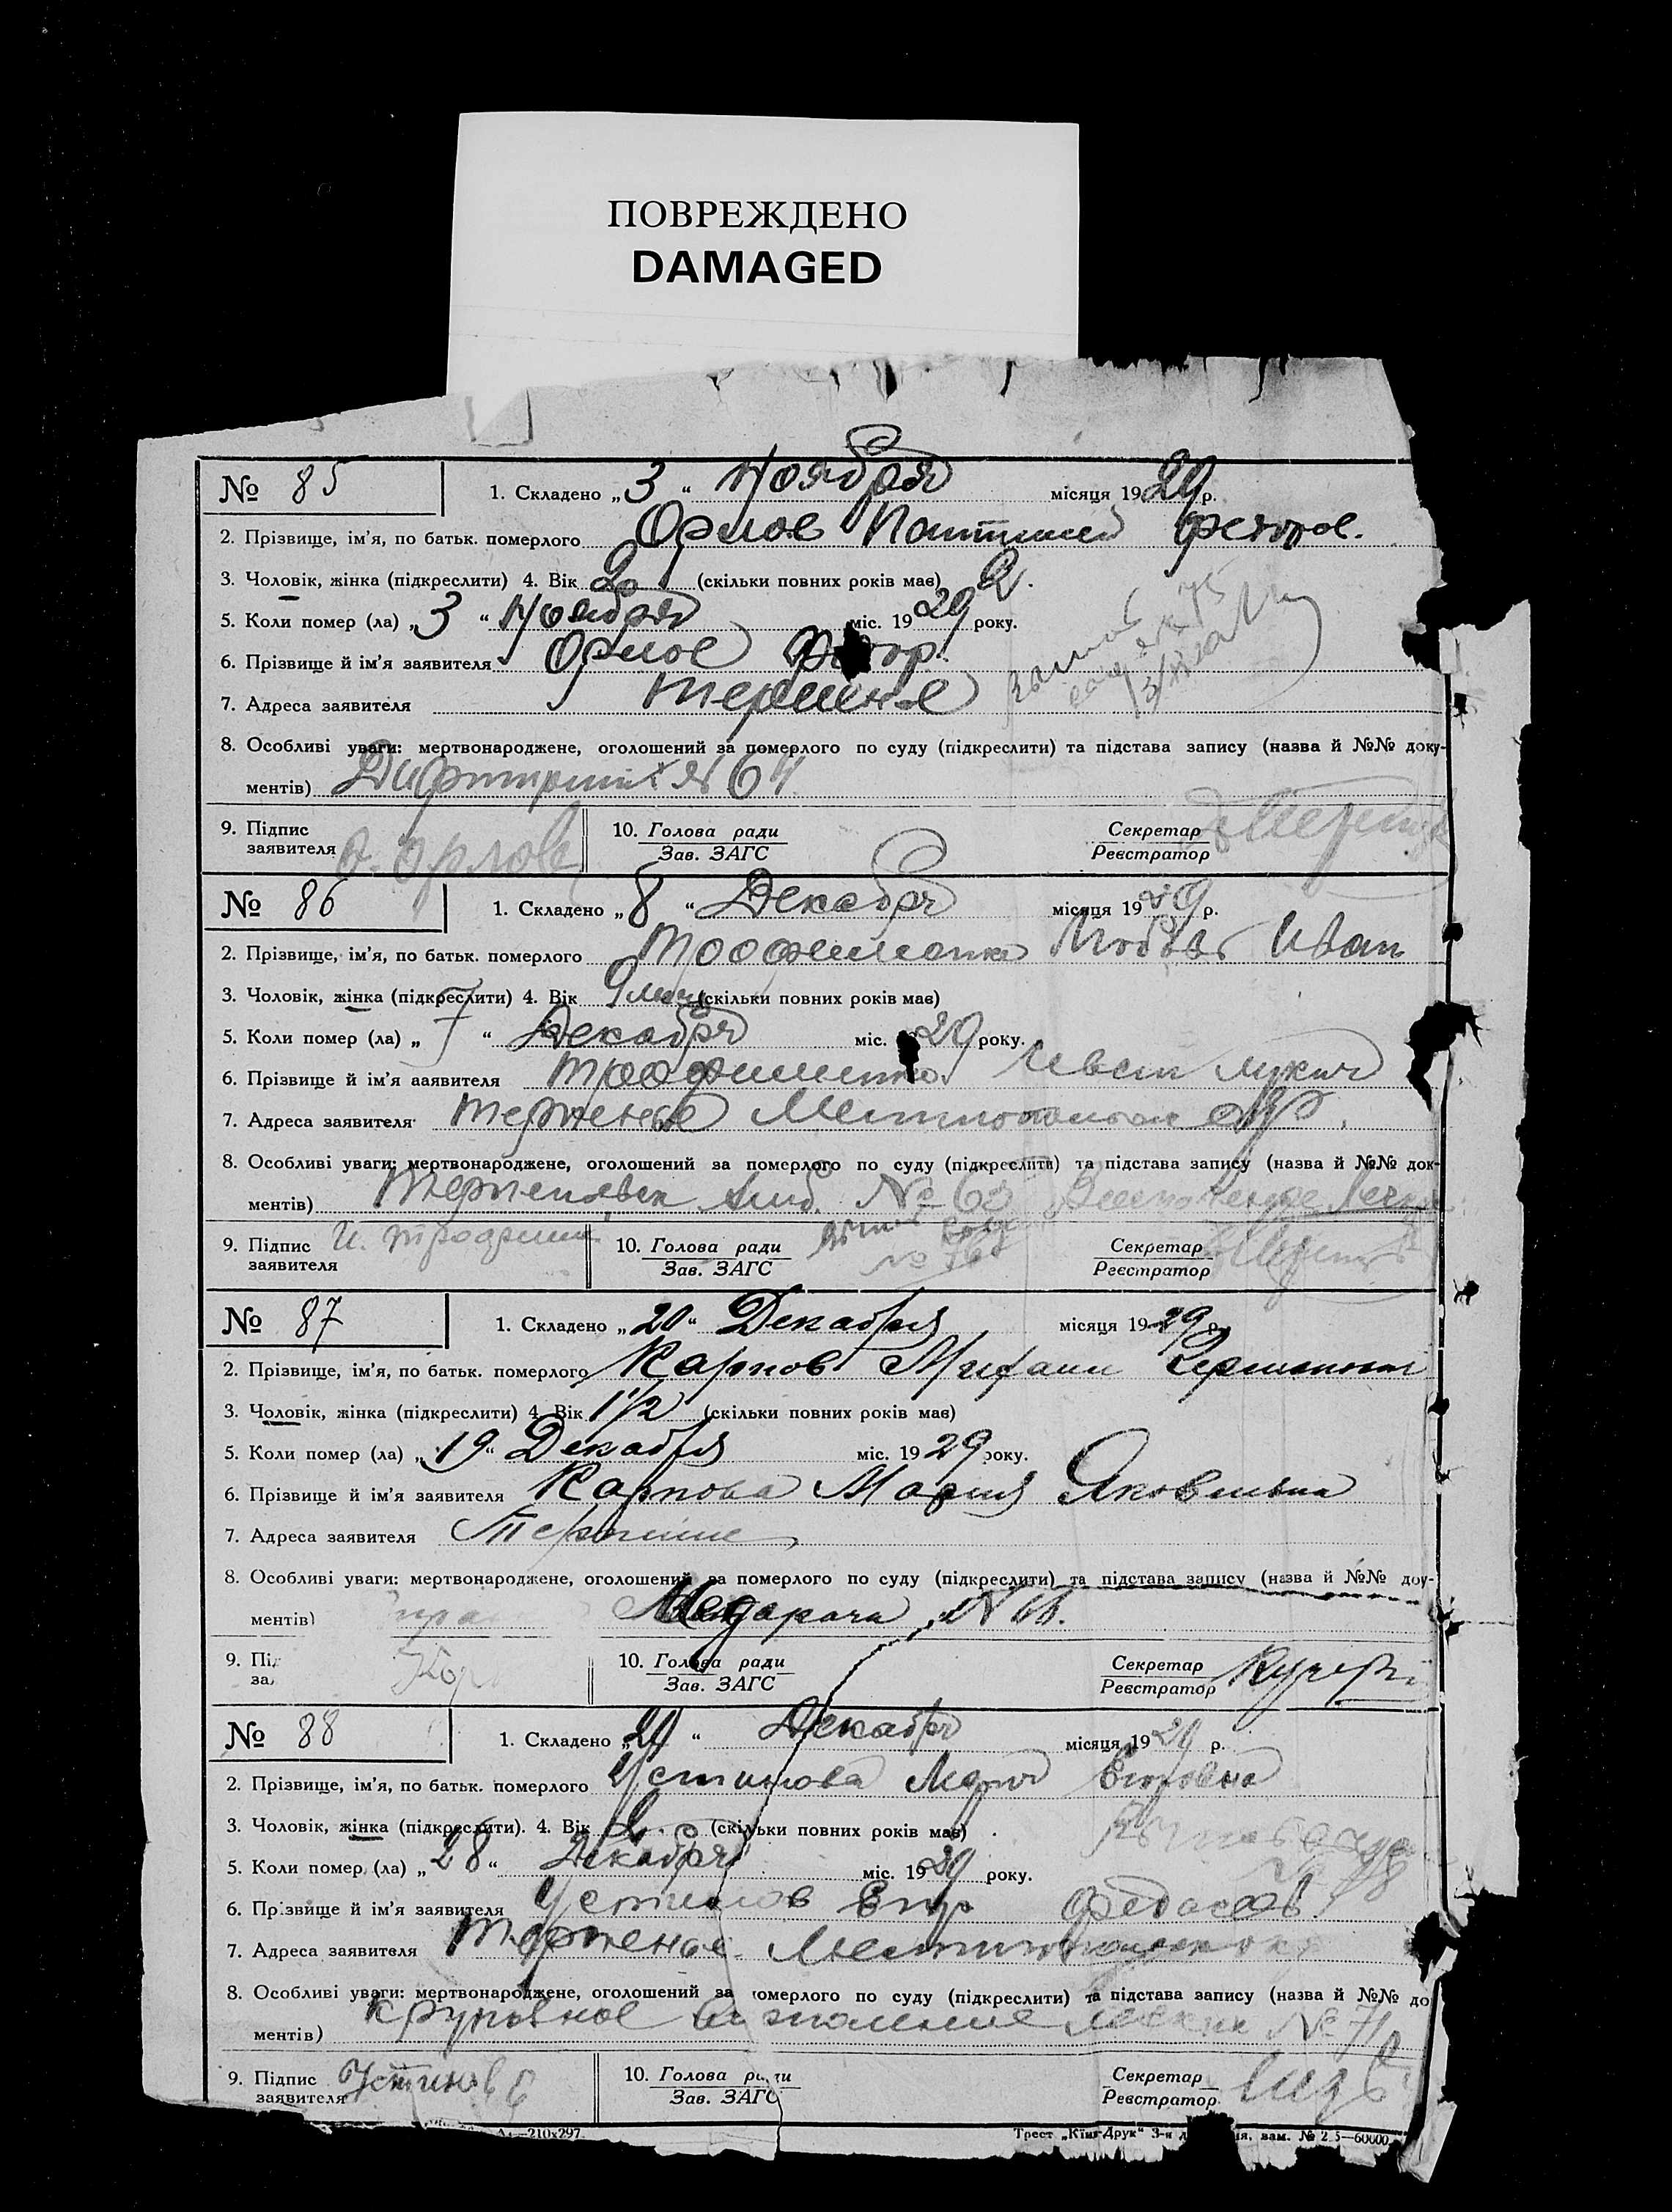 ПОВРЕЖДЕНО
DAMAGED
№ 85 1. Складено „3“ Ноября місяця 1929 р.
2. Прізвище, ім'я, по батьк. померлого Орлов
3. Чоловік, жінка (підкреслити) 4. Вік 2 (скільки повних років має) 2.
5. Коли помер (ла) „3“ Ноября міс. 1929 року.
6. Прізвище й ім'я заявителя Орлов
7. Адреса заявителя Терпенье
8. Особливі уваги: мертвонароджене, оголошений за померлого по суду (підкреслити) та підстава запису (назва й №№ доку-
ментів) Дифтерит № 64
9. Підпис заявителя Орлов 10. Голова ради Зав. ЗАГС Секретар Реєстратор
№ 86 1. Складено „8“ Декабря місяця 1929 р.
2. Прізвище, ім'я, по батьк. померлого Трофименко Любовь Иван
3. Чоловік, жінка (підкреслити) 4. Вік 9 мес (скільки повних років має)
5. Коли помер (ла) „7“ Декабря міс. 29 року.
6. Прізвище й ім'я заявителя Трофименко Иван Лукич
7. Адреса заявителя Терпенье Мелитопольск окр.
8. Особливі уваги: мертвонароджене, оголошений за померлого по суду (підкреслити) та підстава запису (назва й №№ док-
ментів) Терпеньевск амб. № 65 Воспаление легких
9. Підпис заявителя И. Трофимен 10. Голова ради Зав. ЗАГС Секретар Реєстратор
№ 87 1. Складено „20“ Декабря місяця 1929 р.
2. Прізвище, ім'я, по батьк. померлого Карпов Михаил
3. Чоловік, жінка (підкреслити) 4. Вік 1 1/2 (скільки повних років має)
5. Коли помер (ла) „19“ Декабря міс. 1929 року.
6. Прізвище й ім'я заявителя Карпова Мария Яковлевна
7. Адреса заявителя Терпение
8. Особливі уваги: мертвонароджене, оголошений за померлого по суду (підкреслити) та підстава запису (назва й №№ доу-
ментів)
9. Під за 10. Голова ради Зав. ЗАГС Секретар Реєстратор
№ 88 1. Складено „29“ Декабря місяця 1929 р.
2. Прізвище, ім'я, по батьк. померлого Устинова Мария Егоровна
3. Чоловік, жінка (підкреслити). 4. Вік (скільки повних років має)
5. Коли помер (ла) „28“ Декабря міс. 1929 року.
6. Прізвище й ім'я заявителя Устинов Егор Федосов
7. Адреса заявителя Терпенье Мелитопольск окр
8. Особливі уваги: мертвонароджене, оголошений за померлого по суду (підкреслити) та підстава запису (назва й №№ до
ментів) крупозное воспаление легких № 71
9. Підпис заявителя Устинов Е 10. Голова ради Зав. ЗАГС Секретар Реєстратор
210х297 Трест „Київ-Друк“ 3-я